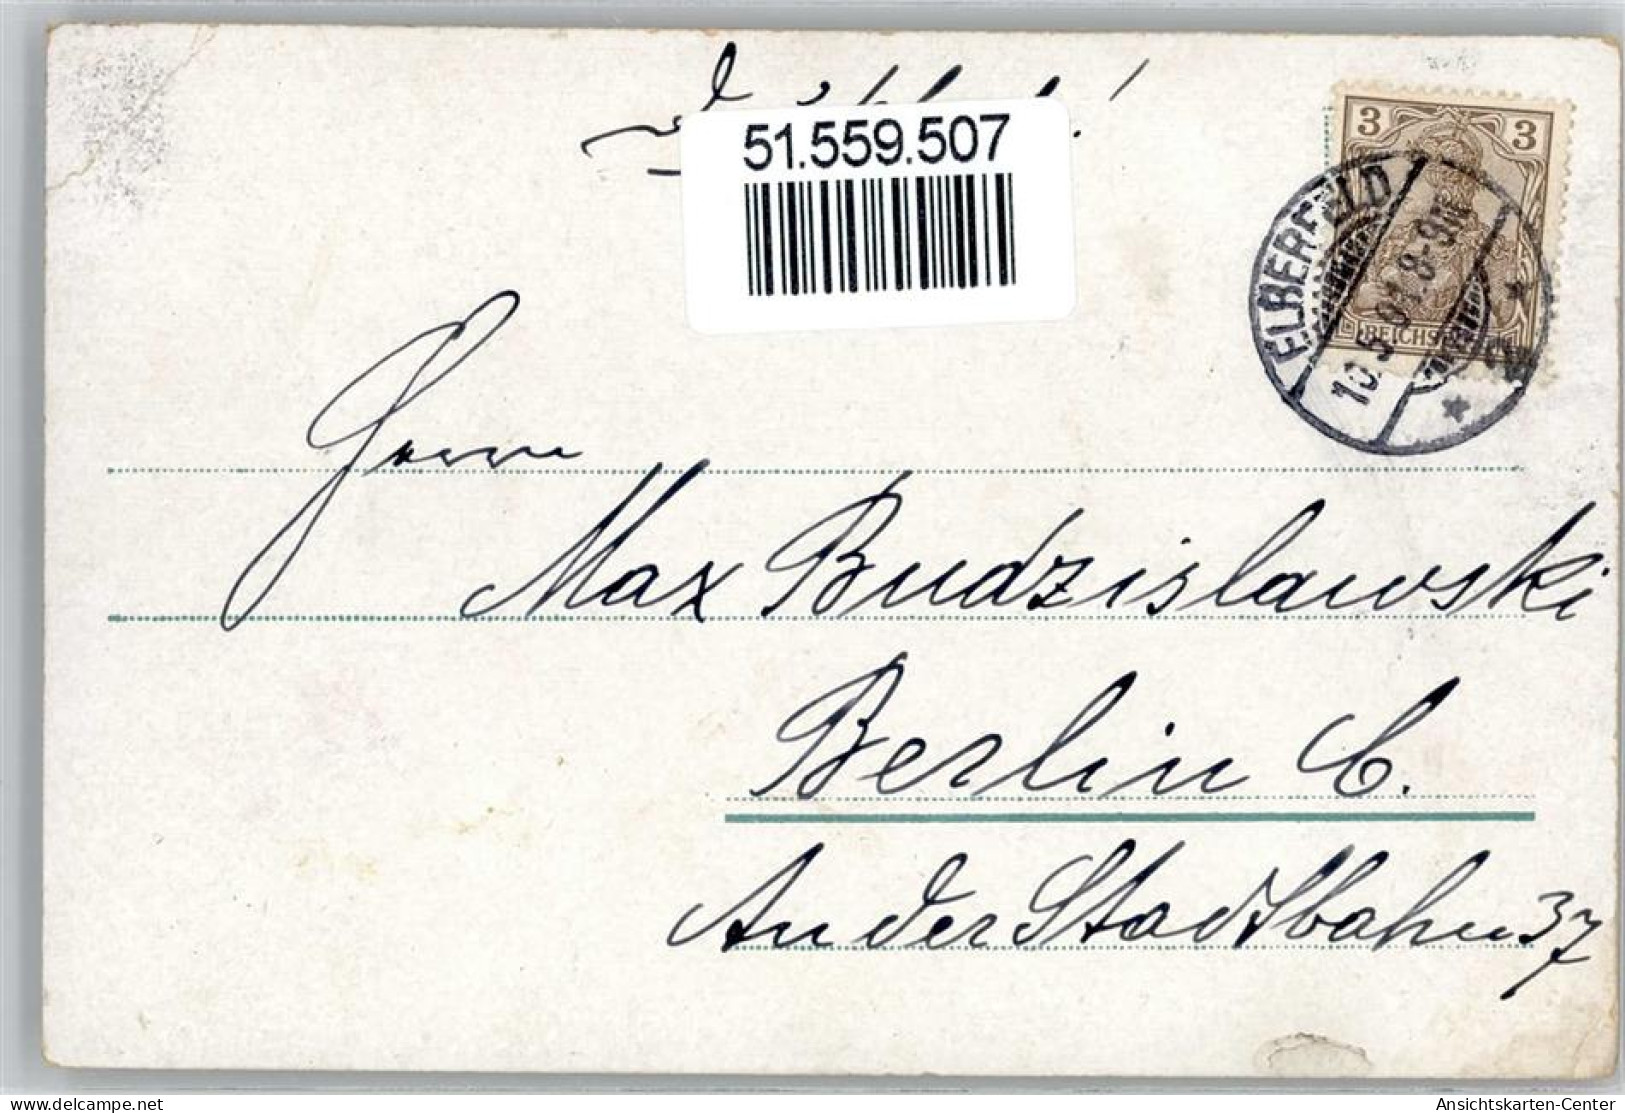 51.559.507
3 3
REICHSPOST
ELBERFELD
10.5.01.8-9N.
* 2 *
Herrn
Max Budzislawski
Berlin C.
An der Stadtbahn 37
delcampe.net
Ansichtskarten-Center